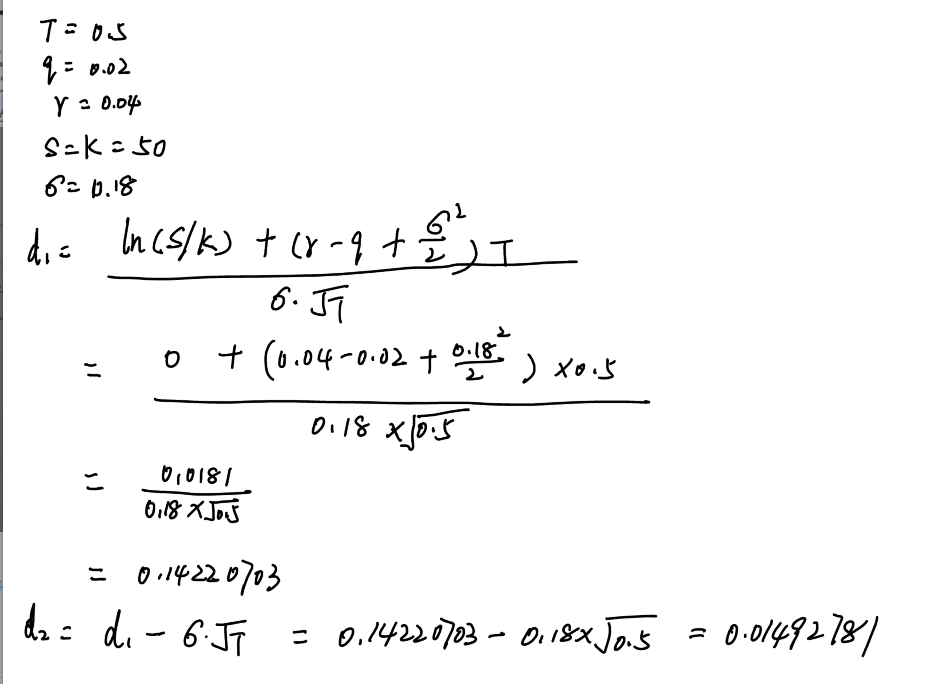 T = 0.5
q = 0.02
r = 0.04
S = K = 50
σ = 0.18
d₁ = (ln(S/K) + (r - q + σ²/2)T) / (σ·√T)
= (0 + (0.04 - 0.02 + 0.18²/2) × 0.5) / (0.18 × √0.5)
= 0.0181 / (0.18 × √0.5)
= 0.14220703
d₂ = d₁ - σ·√T = 0.14220703 - 0.18×√0.5 = 0.01492781